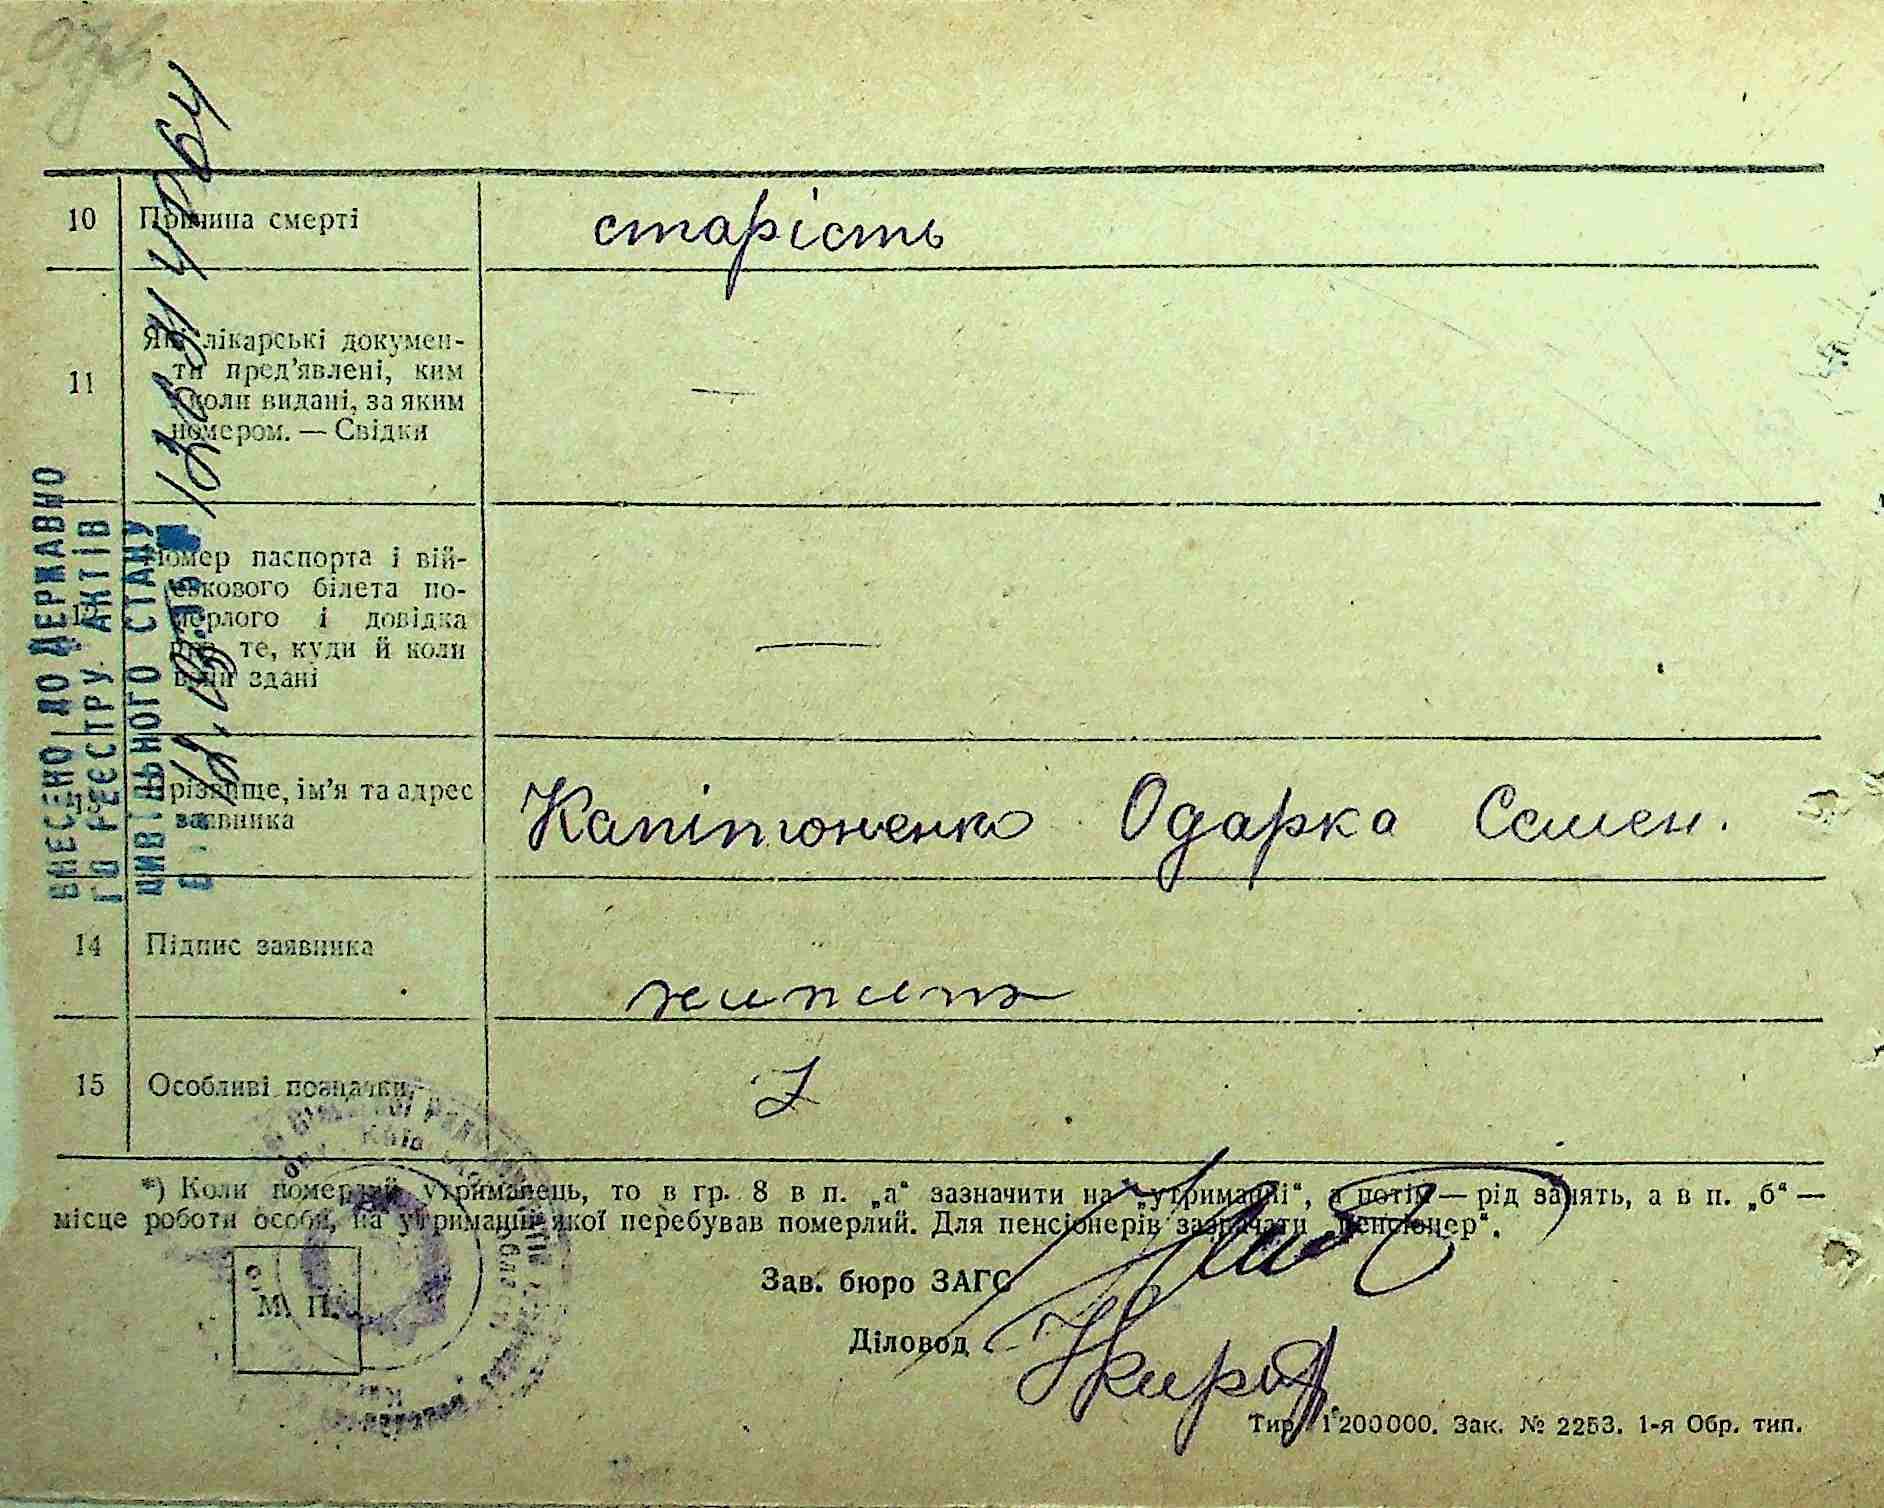 10 Причина смерті старість
11 Які лікарські докумен-
ти пред'явлені, ким
і коли видані, за яким
номером. — Свідки —
12 Номер паспорта і вій-
ськового білета по-
мерлого і довідка
про те, куди й коли
вони здані —
13 Прізвище, ім'я та адрес
заявника Капітоненко Одарка Семен.
14 Підпис заявника
15 Особливі позначки
*) Коли померлий утриманець, то в гр. 8 в п. „а“ зазначити на „утриманні“, а потім — рід занять, а в п. „б“ —
місце роботи особи, на утриманні якої перебував померлий. Для пенсіонерів зазначати „пенсіонер“.
Зав. бюро ЗАГС
М. П.
Діловод
Тир. 1200000. Зак. № 2253. 1-я Обр. тип.
ВНЕСЕНО ДО ДЕРЖАВНО
ГО РЕЄСТРУ АКТІВ
ЦИВІЛЬНОГО СТАНУ